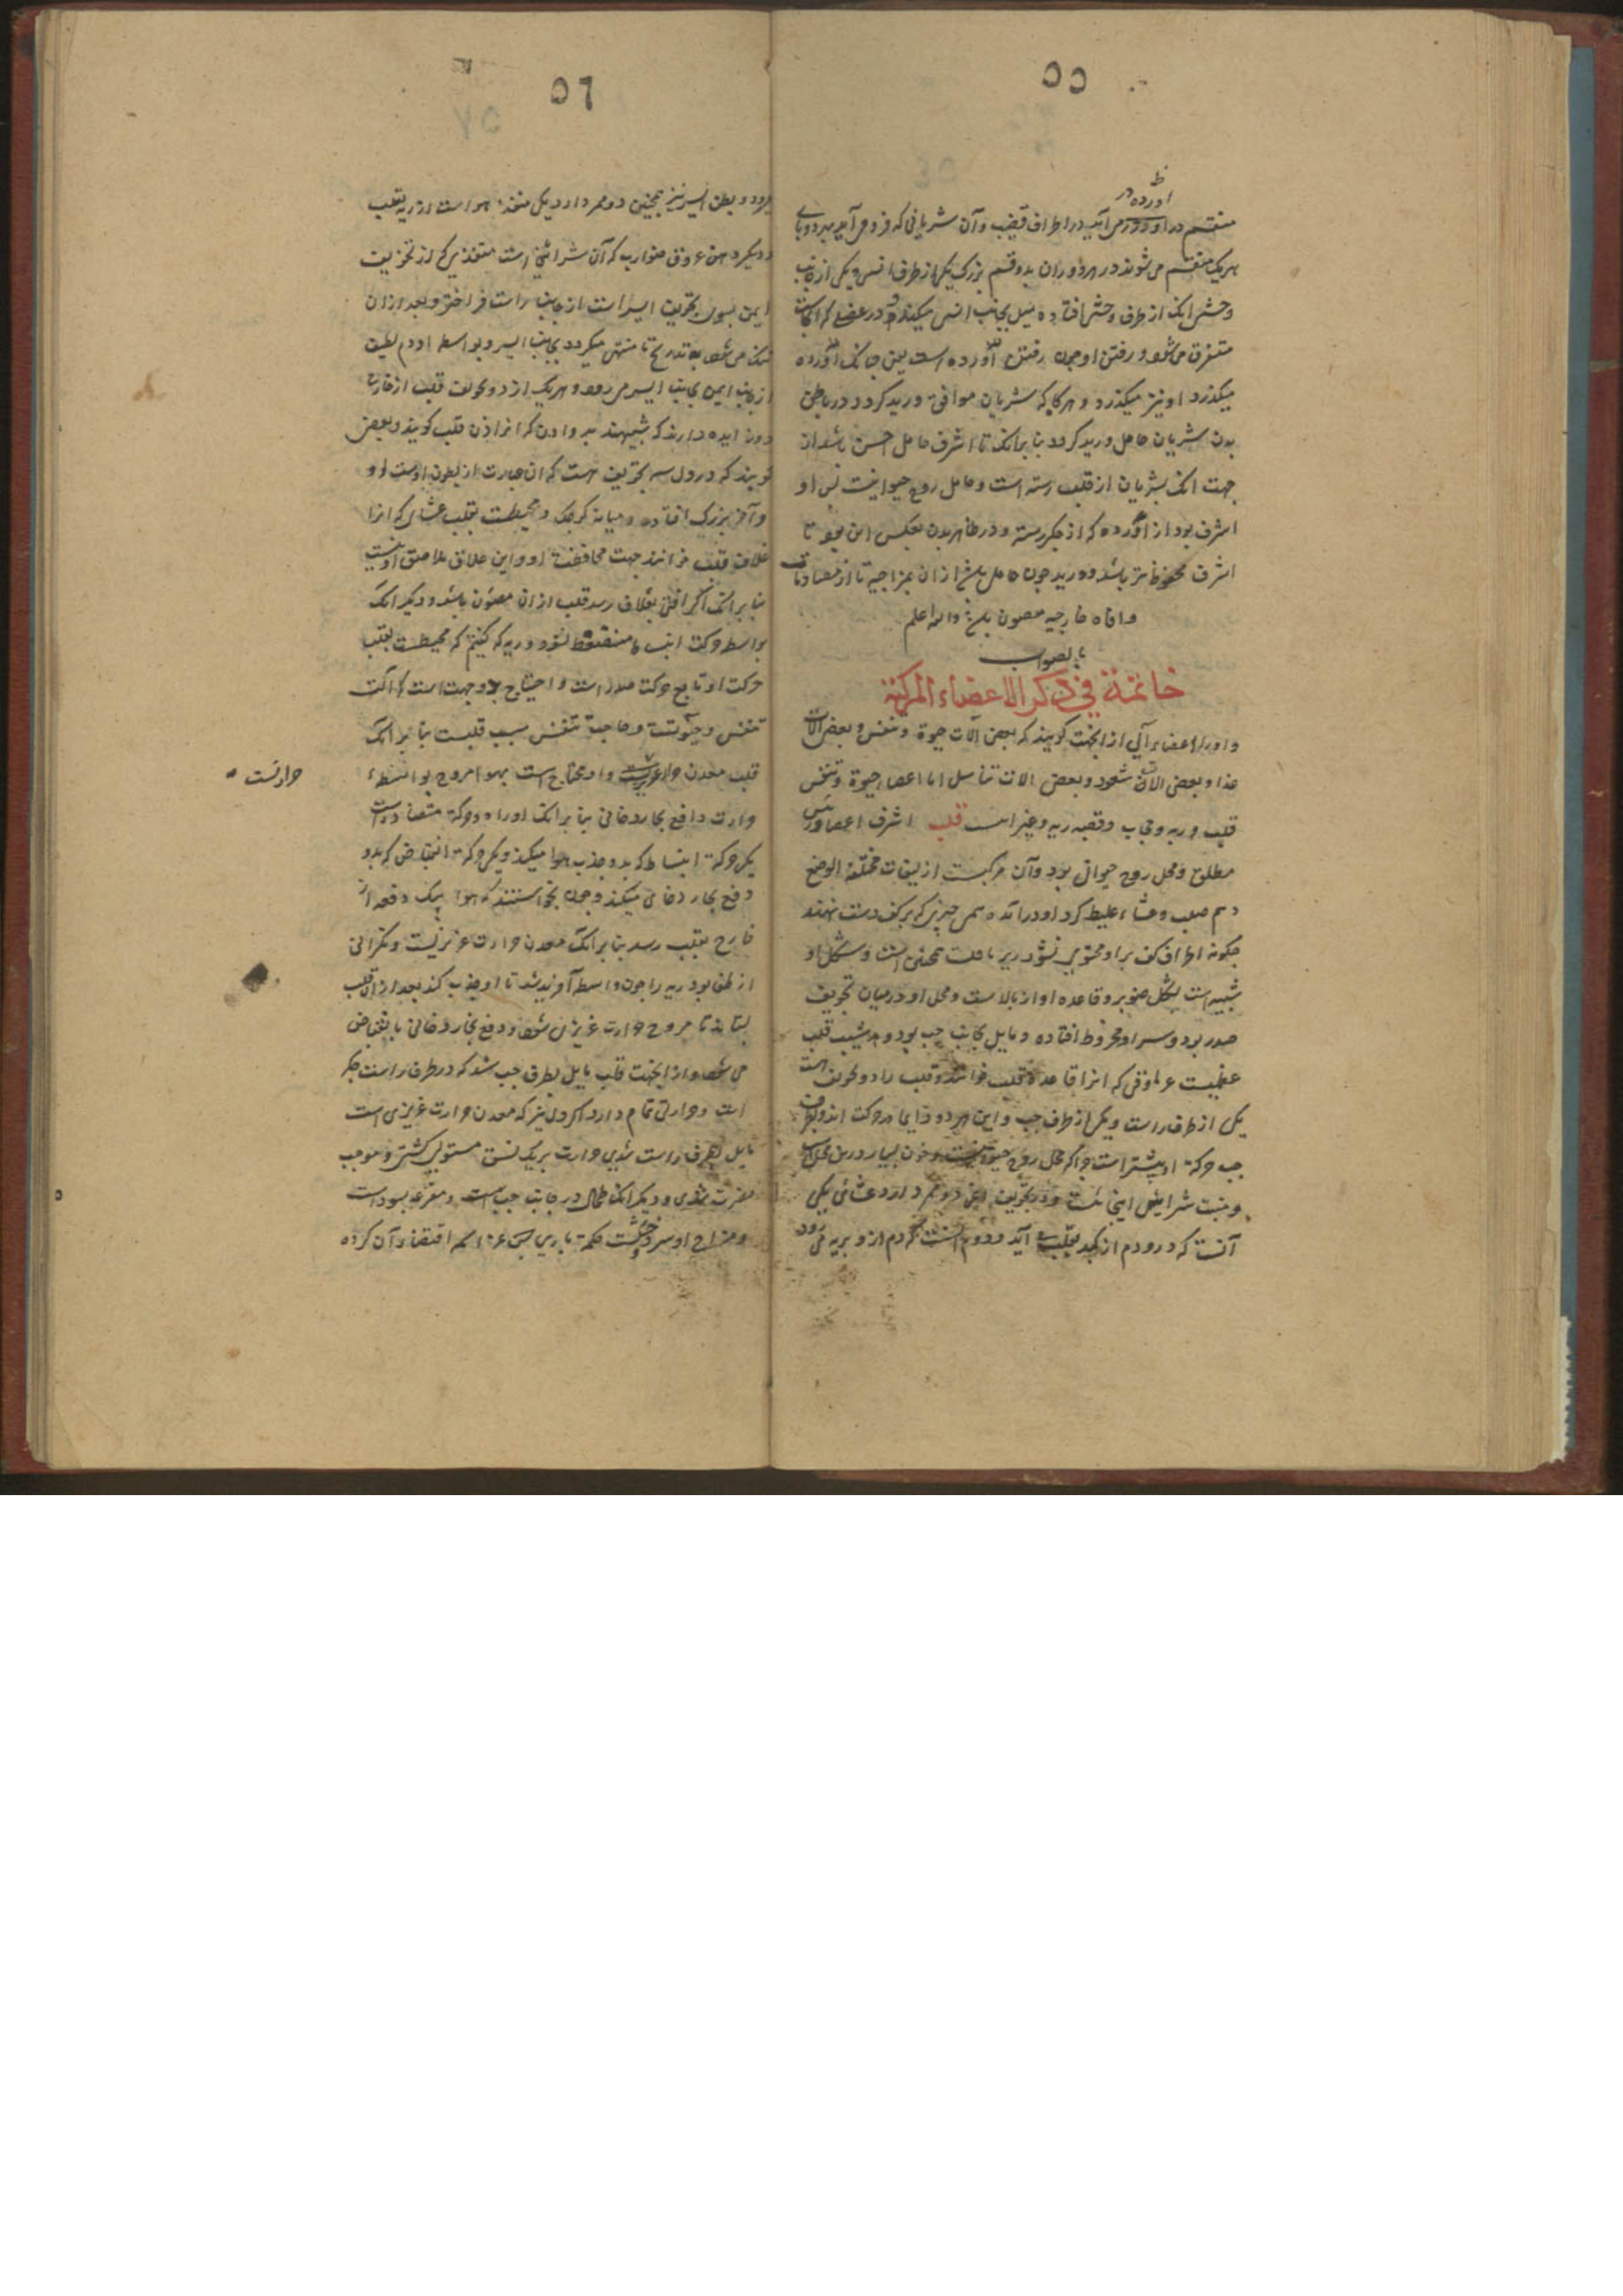 ٥٥
اورده در
منقسم در اورده می آید در اطراف قضیب و آن شریانی که فرو می آید بهر دو پای
هریک منقسم می شوند در هر دو ران بدو قسم بزرگ یکی از طرف انسی و یکی از جانب
وحشی انک از طرف وحشی افتاده میل بجانب انسی میکند و در عضلی که انجاست
متفرق می شود و رفتن او چون رفتن اورده است یعنی چنانک اورده
میکذرد او نیز میکذرد و هرکاه که شریان موافق ورید کردد در باطن
بدن شریان حامل ورید کردد بنا برانک تا اشرف حامل اخس باشد از ان
جهت انک شریان از قلب رسته است و حامل روح حیوانیست پس او
اشرف بود از اورده که از جکر رسته و در ظاهر بدن بعکس این بود تا
اشرف محفوظ تر باشد و ورید چون حامل باشد از ان
و افات خارجیه مصون باشد والله اعلم
بالصواب
خاتمة في ذكر الاعضاء المركبة
و او را اعضاء آلی از انجهت کویند که بعضی آلات حیوة و تنفس و بعضی آلات
غذا و بعضی آلات شعور و بعضی آلات تناسل اما اعضاء حیوة و تنفس
قلب و ریه و حجاب و قصبه ریه و غیر است قلب اشرف اعضا و رئیس
مطلق و محل روح حیوانی بود و آن مرکبست از لیفات مختلفة الوضع
و لحم صلب و غشاء غلیظ کرد او درآمده همچو چیزی که بر کف دست نهند
چکونه اطراف کف براو محتوی شود ریه با قلب همچنین است و شکل او
شبیه است بشکل صنوبر و قاعده او از بالاست و محل او در میان تجویف
صدر بود و سر او مخروط افتاده و مایل بجانب چپ بود و بر شیب قلب
عظمیست غضروفی که انرا قاعده قلب خوانند و قلب را دو تجویف است
یکی از طرف راست و یکی از طرف چپ و این هر دو دایما در حرکت اند و بطرف
چپ حرکة او بیشتر است چرا که محل روح حیوانیست و خون بسیار درین محل است
و منبت شراین اینجاست و در تجویف ایمن دو فم دارد غشائی یکی
آنست که درو دم از کبد بقلب آید و دوم آنست که دم ازو بریه می رود
٥٦
میرود و بطن ایسر نیز همچنین دو ممر دارد یکی منفذ هواست از ریه بقلب
و دیکر دهن عروق ضوارب که آن شرائین است منفذیی که از تجویف
ایمن بسوی تجویف ایسر است از جانب راست فراختر و بعد از ان
تنک می شود بتدریج تا منتهی میکردد بجانب ایسر و بواسطه او دم لطیف
از جانب ایمن بجانب ایسر می رود و هریک از دو تجویف قلب از خارج
دو زایده دارند که شبیهند بدو اذن که انرا اذن قلب کویند و بعضی
کویند که در دل سه تجویف است که ان عبارت از بطون اوست اول
و آخر بزرک افتاده و میانه کوچک و محیطست بقلب غشائی که انرا
غلاف قلب خوانند جهت محافظت او و این غلاف ملاصق او نیست
بنا برانک اکر افتی بغلاف رسد قلب از ان مصئون باشد و دیکر انک
بواسطه حرکت انبساط منضغط نشود و ریه که کفتیم که محیطست بقلب
حرکت او تابع حرکت صدر است و احتیاج بدو جهت است که آلت
تنفس و صوتست و حاجت تنفس بسبب قلبست بنا برانک
قلب معدن حرارت غریزیست و او محتاج است بهوا مروح بواسطه
حرارتست
حرارت و دافع بخار دخانی بنا برانک او را دو حرکة متضاد است
یکی حرکة انبساط که بدو جذب هوا میکند و یکی حرکة انقباض که بدو
دفع بخار دخانی میکند و چون نخواستند که هوا بیک دفعه از
خارج بقلب رسد بنا برانک معدن حرارت غریزیست و نکرانی
از طفی بود ریه را چون واسطه آفریدند تا او جذب کند بعد از ان قلب
بستاند تا مروح حرارت غریزی شود و دفع بخار دخانی بانقباض
می شود و از انجهت قلب مایل بطرف چپ شد که در طرف راست جکر
است و حرارتی تمام دارد اکر دل نیز که معدن حرارت غریزی است
مایل بطرف راست شدی حرارت بریک شق مستولی کشتی و موجب
مضرت شدی و دیکر انک طحال در جانب چپ است و مفرغه سوداست
و مزاج او سرد و خشکست حکمة باری عز اسمه اقتضاء آن کرده